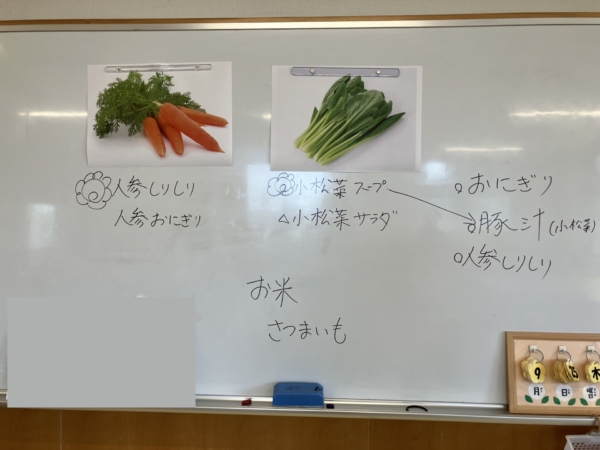 人参しりしり
人参おにぎり
小松菜スープ
△小松菜サラダ
お米
さつまいも
○おにぎり
○豚汁(小松菜)
○人参しりしり
9
木
月
日
曜日